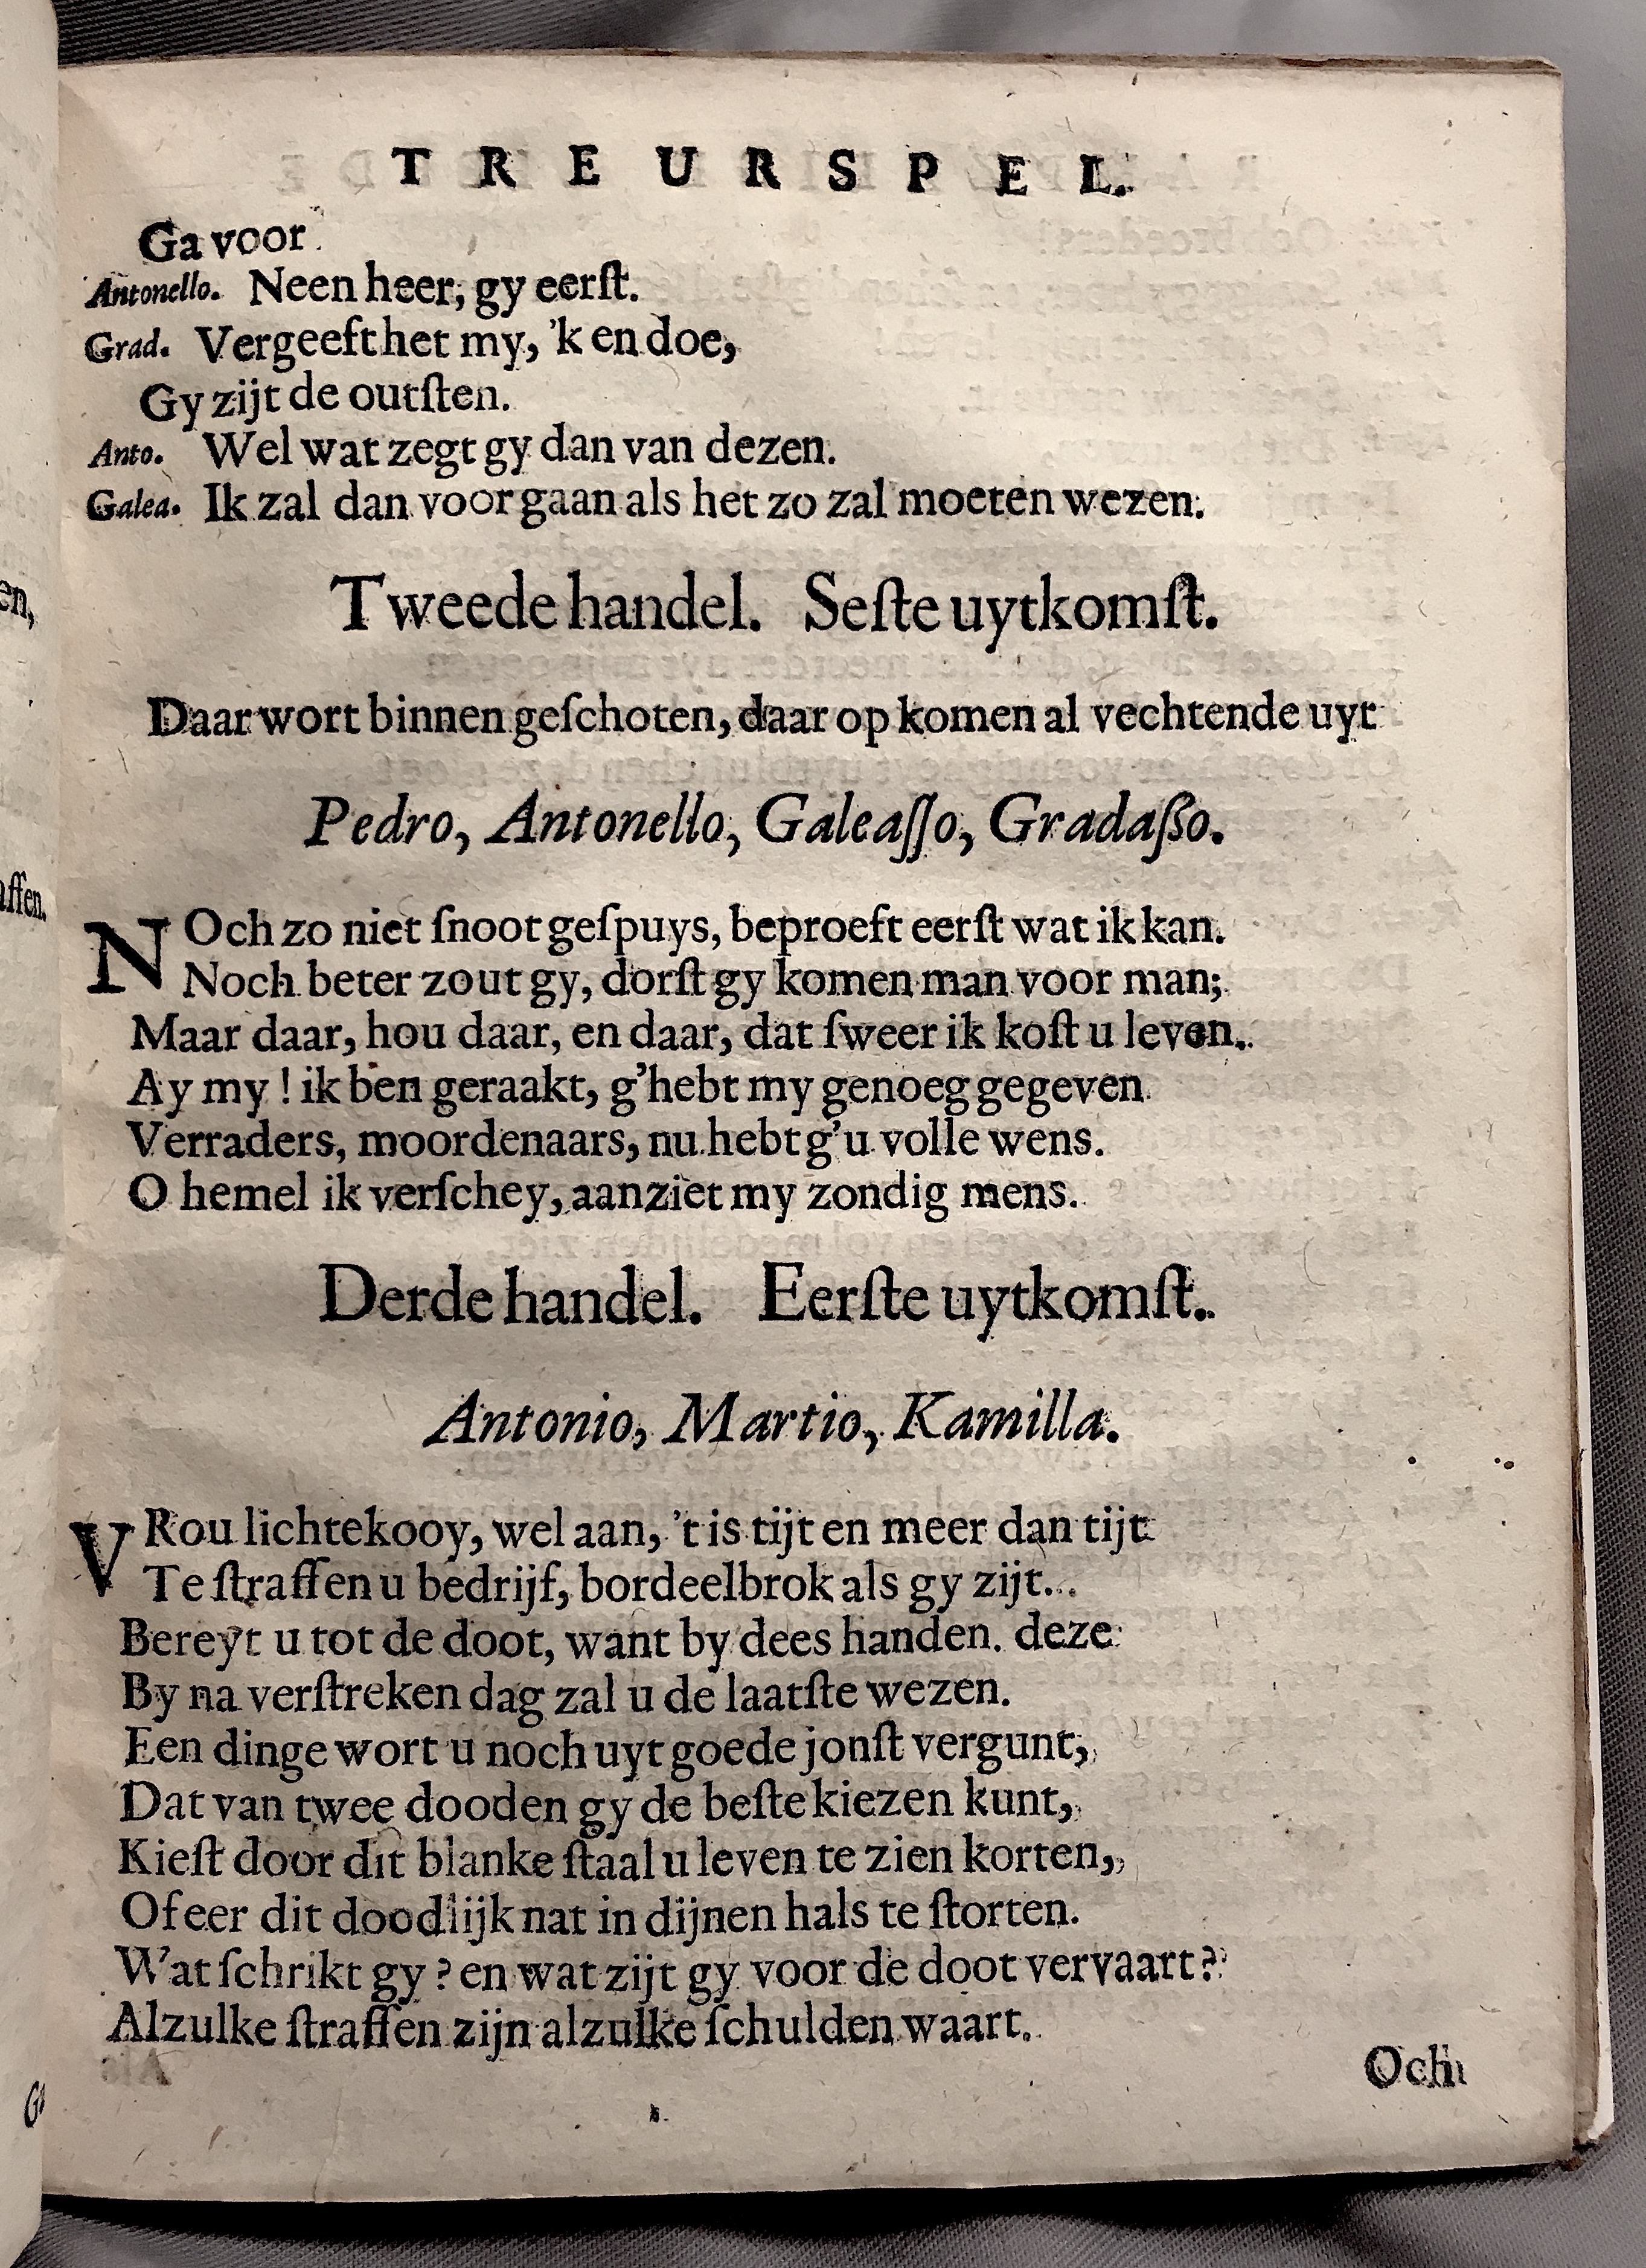 TREURSPEL.
Ga voor.
Antonello. Neen heer, gy eerſt.
Grad. Vergeeft het my, 'k en doe,
Gy zijt de outſten.
Anto. Wel wat zegt gy dan van dezen.
Galea. Ik zal dan voor gaan als het zo zal moeten wezen.
Tweede handel. Seſte uytkomſt.
Daar wort binnen geſchoten, daar op komen al vechtende uyt
Pedro, Antonello, Galeaſſo, Gradaßo.
NOch zo niet ſnoot geſpuys, beproeft eerſt wat ik kan.
Noch beter zout gy, dorſt gy komen man voor man;
Maar daar, hou daar, en daar, dat ſweer ik koſt u leven.
Ay my! ik ben geraakt, g'hebt my genoeg gegeven
Verraders, moordenaars, nu hebt g'u volle wens.
O hemel ik verſchey, aanziet my zondig mens.
Derde handel. Eerſte uytkomſt.
Antonio, Martio, Kamilla.
VRou lichtekooy, wel aan, 't is tijt en meer dan tijt
Te ſtraffen u bedrijf, bordeelbrok als gy zijt.
Bereyt u tot de doot, want by dees handen. deze
By na verſtreken dag zal u de laatſte wezen.
Een dinge wort u noch uyt goede jonſt vergunt,
Dat van twee dooden gy de beſte kiezen kunt,
Kieſt door dit blanke ſtaal u leven te zien korten,
Of eer dit doodlijk nat in dijnen hals te ſtorten.
Wat ſchrikt gy? en wat zijt gy voor de doot vervaart?
Alzulke ſtraffen zijn alzulke ſchulden waart.
Och